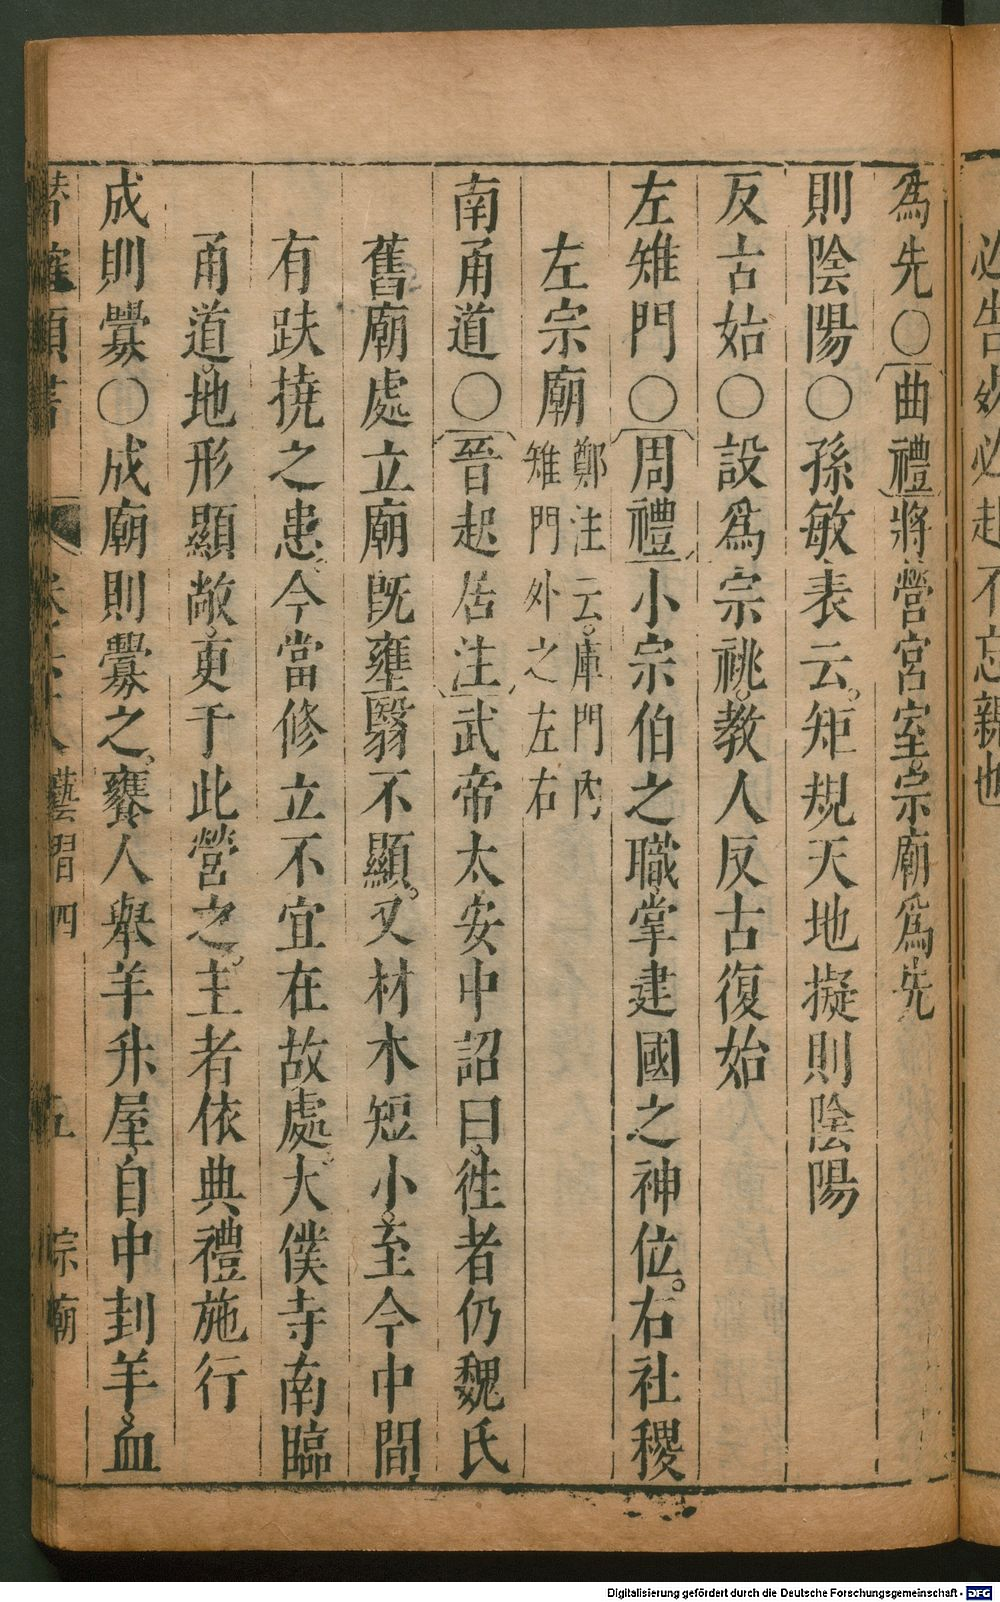 必告
必赴不忘親也
爲先○曲禮將營宮室宗廟爲先
則陰陽○孫敏表云矩規天地擬則陰陽
反古始○設爲宗祧教人反古復始
左雉門○周禮小宗伯之職掌建國之神位右社稷
左宗廟鄭注云庫門內
雉門外之左右
南甬道○晉起居注武帝太安中詔曰徃者仍魏氏
舊廟處立廟既壅翳不顯又材木短小至今中間
有趺撓之患今當修立不宜在故處大僕寺南臨
甬道地形顯敞更于此營之主者依典禮施行
成則釁○成廟則釁之饔人舉羊升屋自中刲羊血
藝習四
五
宗廟
Digitalisierung gefördert durch die Deutsche Forschungsgemeinschaft - DFG